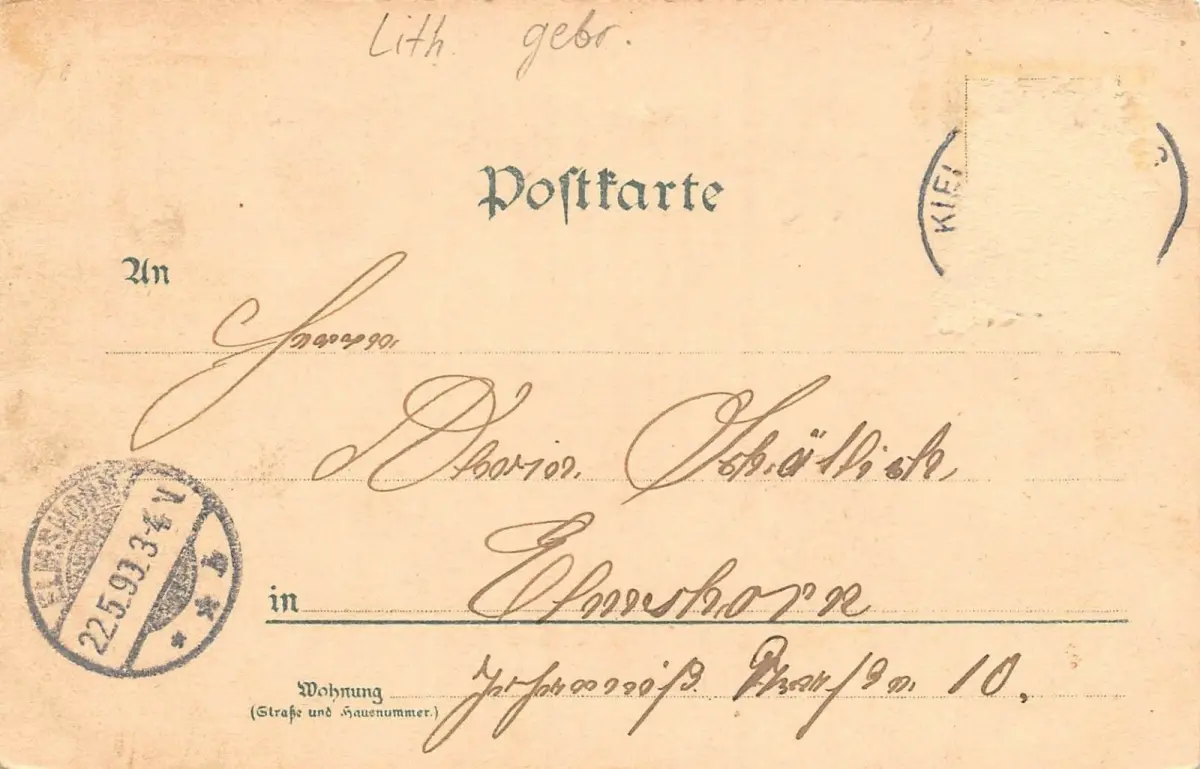 Lith. gebr.
Postkarte
KIEL
An
Herrn
Schätlich
ELMSHORN
22.5.99.3-4 V
in Elmshorn
Wohnung
(Straße und Hausnummer.)
Johannis Straße 10,